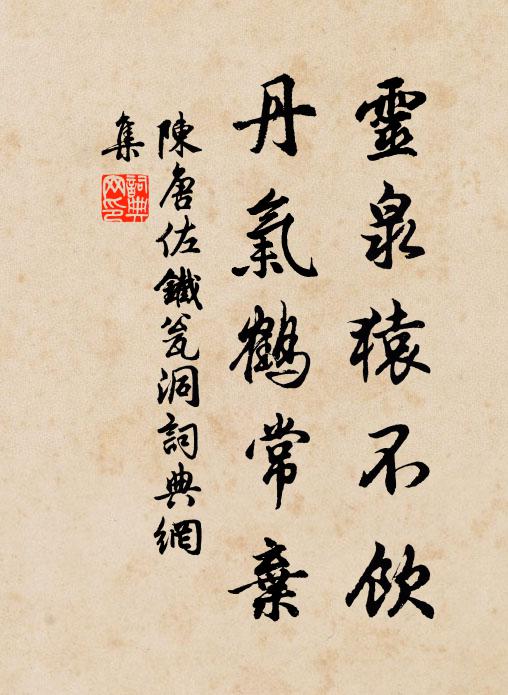 靈泉猿不飲
丹氣鶴常棄
陳唐佐鐵瓮洞詞典網
集
詞典
网印